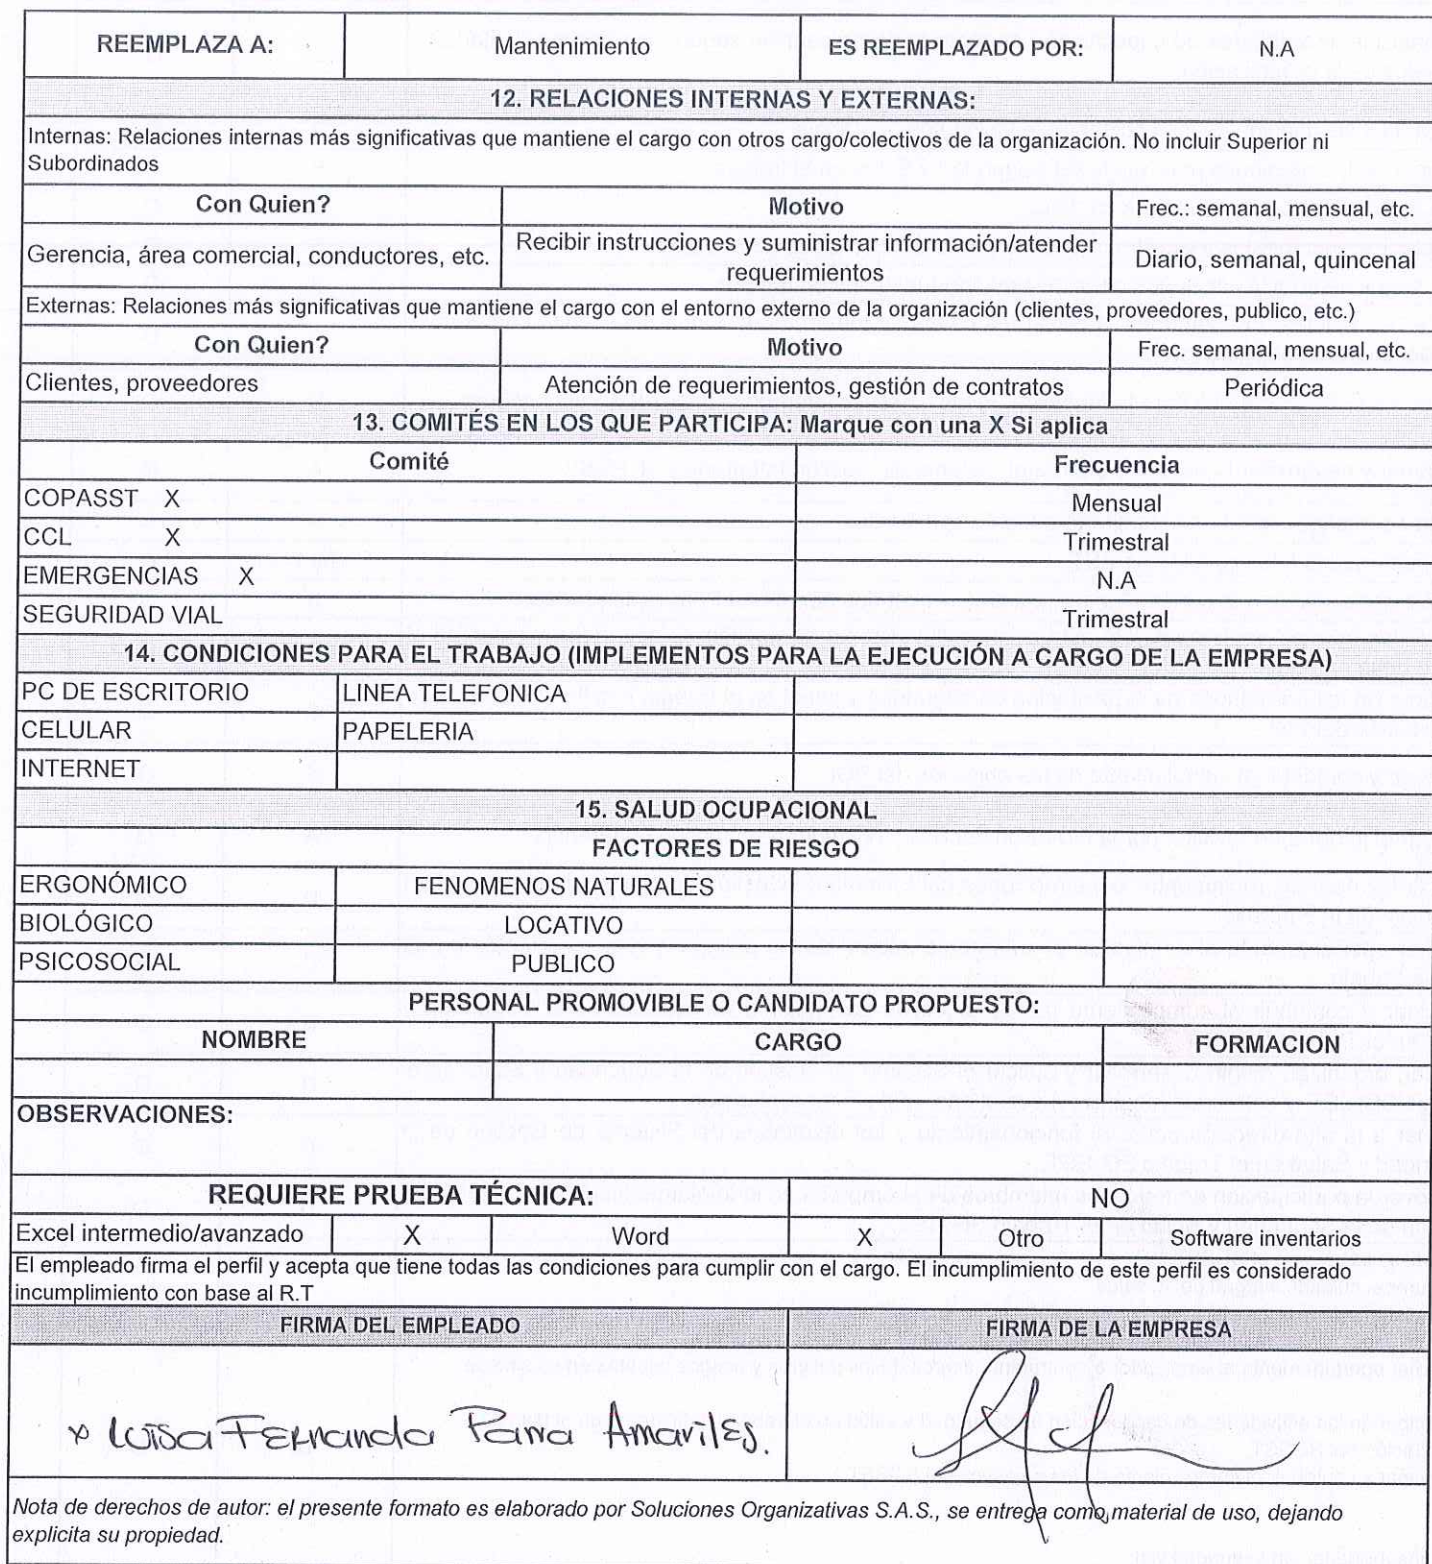 REEMPLAZA A: Mantenimiento ES REEMPLAZADO POR: N.A
12. RELACIONES INTERNAS Y EXTERNAS:
Internas: Relaciones internas más significativas que mantiene el cargo con otros cargo/colectivos de la organización. No incluir Superior ni
Subordinados
Con Quien? Motivo Frec.: semanal, mensual, etc.
Gerencia, área comercial, conductores, etc. Recibir instrucciones y suministrar información/atender
requerimientos Diario, semanal, quincenal
Externas: Relaciones más significativas que mantiene el cargo con el entorno externo de la organización (clientes, proveedores, publico, etc.)
Con Quien? Motivo Frec. semanal, mensual, etc.
Clientes, proveedores Atención de requerimientos, gestión de contratos Periódica
13. COMITÉS EN LOS QUE PARTICIPA: Marque con una X Si aplica
Comité Frecuencia
COPASST X Mensual
CCL X Trimestral
EMERGENCIAS X N.A
SEGURIDAD VIAL Trimestral
14. CONDICIONES PARA EL TRABAJO (IMPLEMENTOS PARA LA EJECUCIÓN A CARGO DE LA EMPRESA)
PC DE ESCRITORIO LINEA TELEFONICA
CELULAR PAPELERIA
INTERNET
15. SALUD OCUPACIONAL
FACTORES DE RIESGO
ERGONÓMICO FENOMENOS NATURALES
BIOLÓGICO LOCATIVO
PSICOSOCIAL PUBLICO
PERSONAL PROMOVIBLE O CANDIDATO PROPUESTO:
NOMBRE CARGO FORMACION
OBSERVACIONES:
REQUIERE PRUEBA TÉCNICA: NO
Excel intermedio/avanzado X Word X Otro Software inventarios
El empleado firma el perfil y acepta que tiene todas las condiciones para cumplir con el cargo. El incumplimiento de este perfil es considerado
incumplimiento con base al R.T
FIRMA DEL EMPLEADO FIRMA DE LA EMPRESA
x Luisa Fernanda Parra Amariles.
Nota de derechos de autor: el presente formato es elaborado por Soluciones Organizativas S.A.S., se entrega como material de uso, dejando
explicita su propiedad.